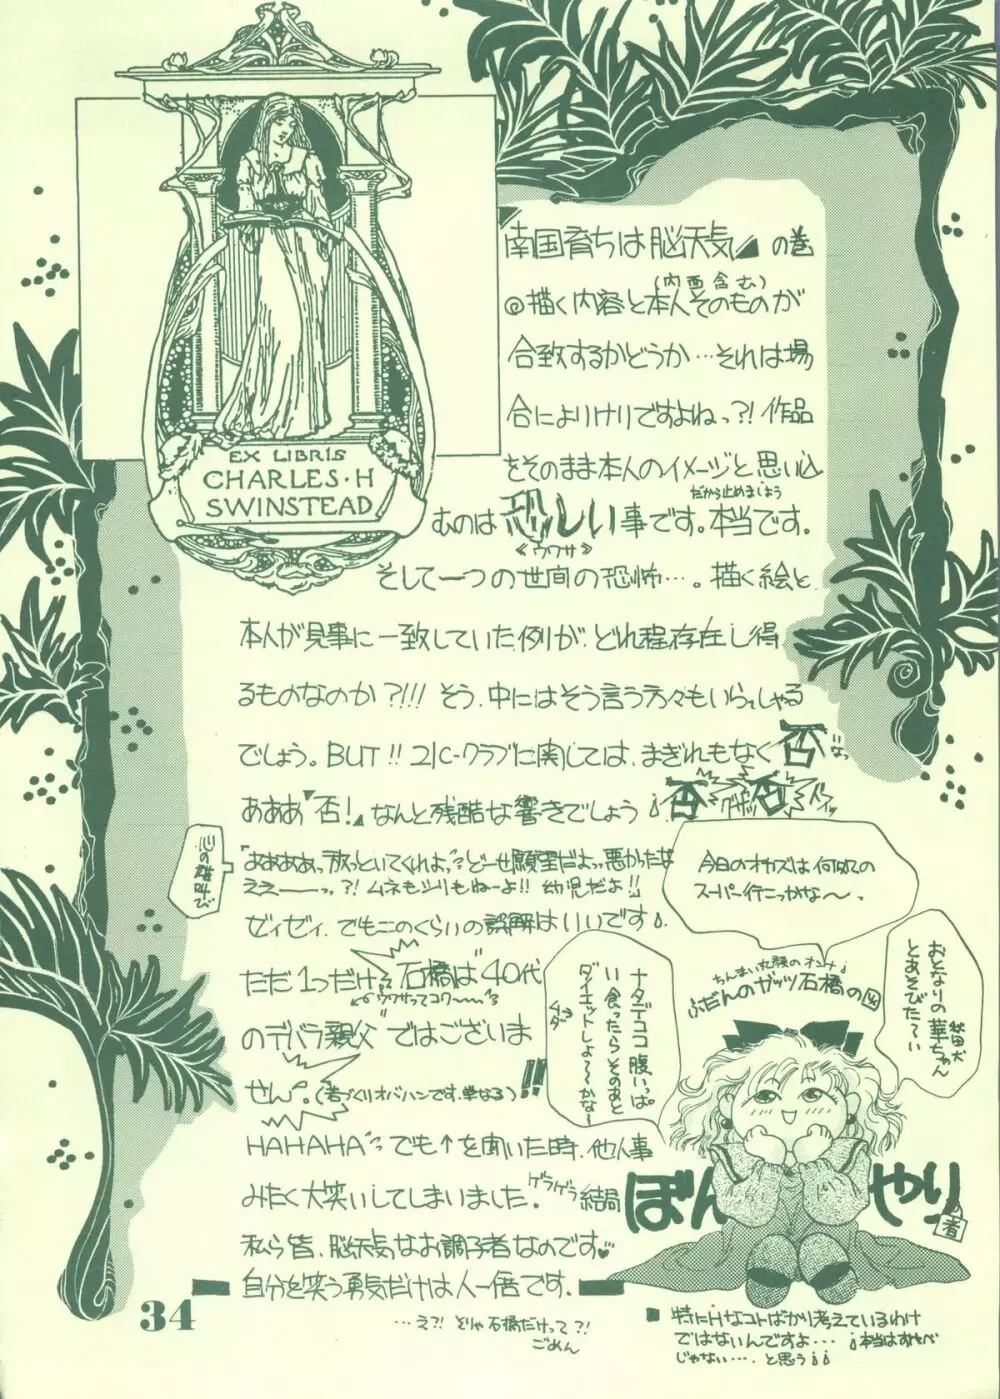 EX LIBRIS
CHARLES・H
SWINSTEAD
南国育ちは脳天気 の巻
(内面含む)
◎描く内容と本人そのものが
合致するかどうか…それは場
合によりけりですよねっ?! 作品
をそのまま本人のイメージと思い込
だから止めましょう
むのは恐しい事です。本当です。
《ウワサ》
そして一つの世間の恐怖…。描く絵と
本人が見事に一致していた例が、どれ程存在し得
るものなのか?!!! そう、中にはそう言う方々もいらっしゃる
でしょう。BUT!! 21C-クラブに関しては、まぎれもなく否なっ
あああ“否!”なんと残酷な響きでしょう 否 グサッ 否
心の雄叫び
ああああっ放っといてくれよっ?どーせ願望だよっ悪かったな
ええーーっっ?! ムネもシリもねーよ!! 幼児だよ!!
ゼィゼィ、でもこのくらいの誤解はいいです。
ただ1つだけ 石橋は“40代
ウワサってコワ〜〜い
のデバラ親父”ではございま
せん。(若づくりオバハンです。単なる)!!
HAHAHA でも↑を聞いた時、他人事
みたく大笑いしてしまいました。ゲラゲラ 結局
私ら皆、脳天気なお調子者なのです♥
自分を笑う勇気だけは人一倍です。
…え?! とりゃ石橋だけって?!
ごめん
今日のオカズは何かなの
スーパー行こっかな〜。
おとなりの華ちゃん
秋田犬
とあそびた〜い
ナタデココ腹いっぱ
い食ったらそのあと
ダイエットしよ〜〜かな〜
ムダ
ちんまい丸顔のオンナ
ふだんのガッツ石橋の図
ぼんやり
の者
■特にHなコトばかり考えているわけ
ではないんですよ… 本当はすけべ
じゃない…。と思う
34